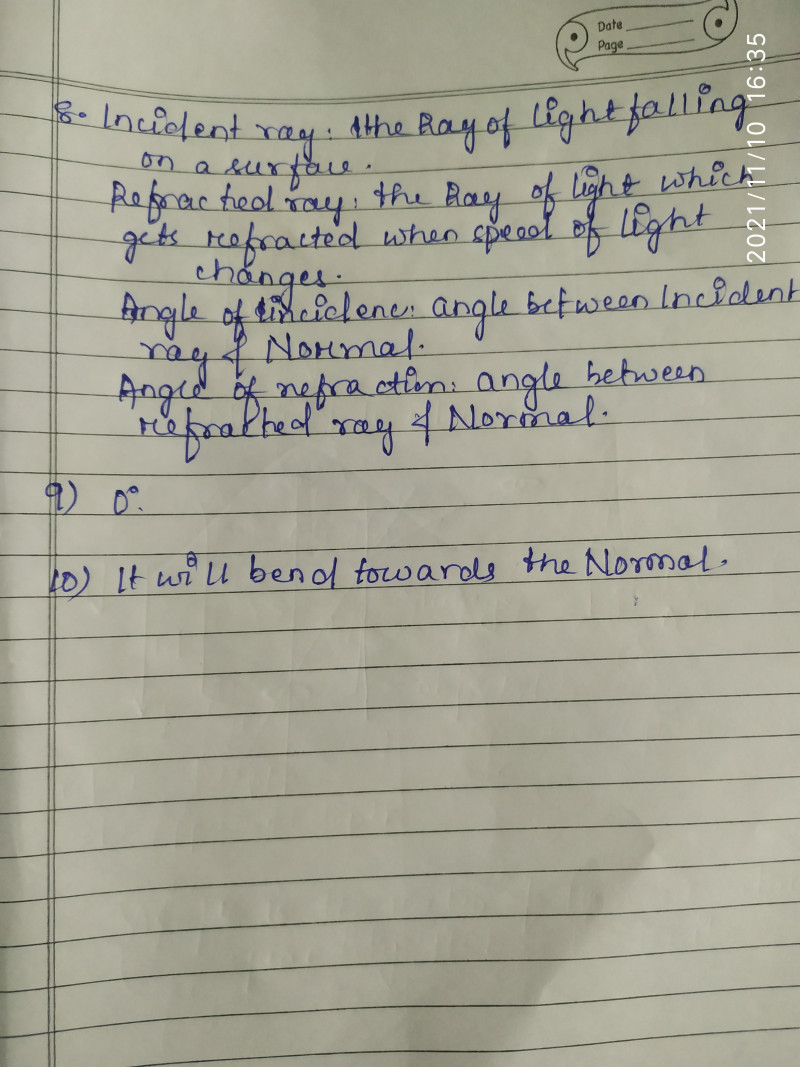 Date
Page
2021/11/10 16:35
8. Incident ray: the Ray of light falling
on a surface.
Refracted ray: the Ray of light which
gets refracted when speed of light
changes.
Angle of incidenc: angle between Incident
ray & Normal.
Angle of refraction: angle between
refracted ray & Normal.
9) 0°.
10) It will bend towards the Normal.